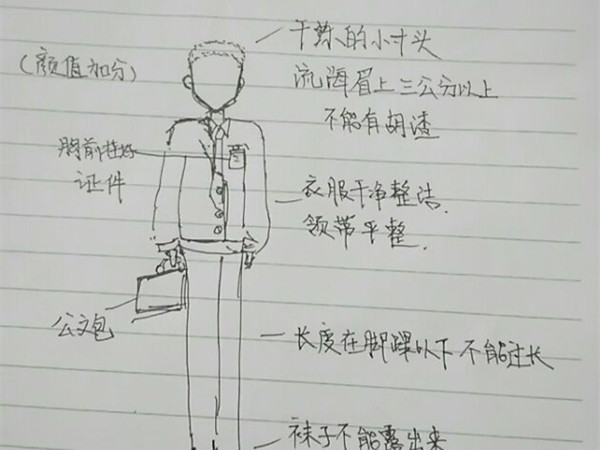 干练的小寸头
(颜值加分)
流海眉上三公分以上
不能有胡渣
胸前挂好
证件
衣服干净整洁.
领带平整.
公文包
长度在脚踝以下不能过长
袜子不能露出来